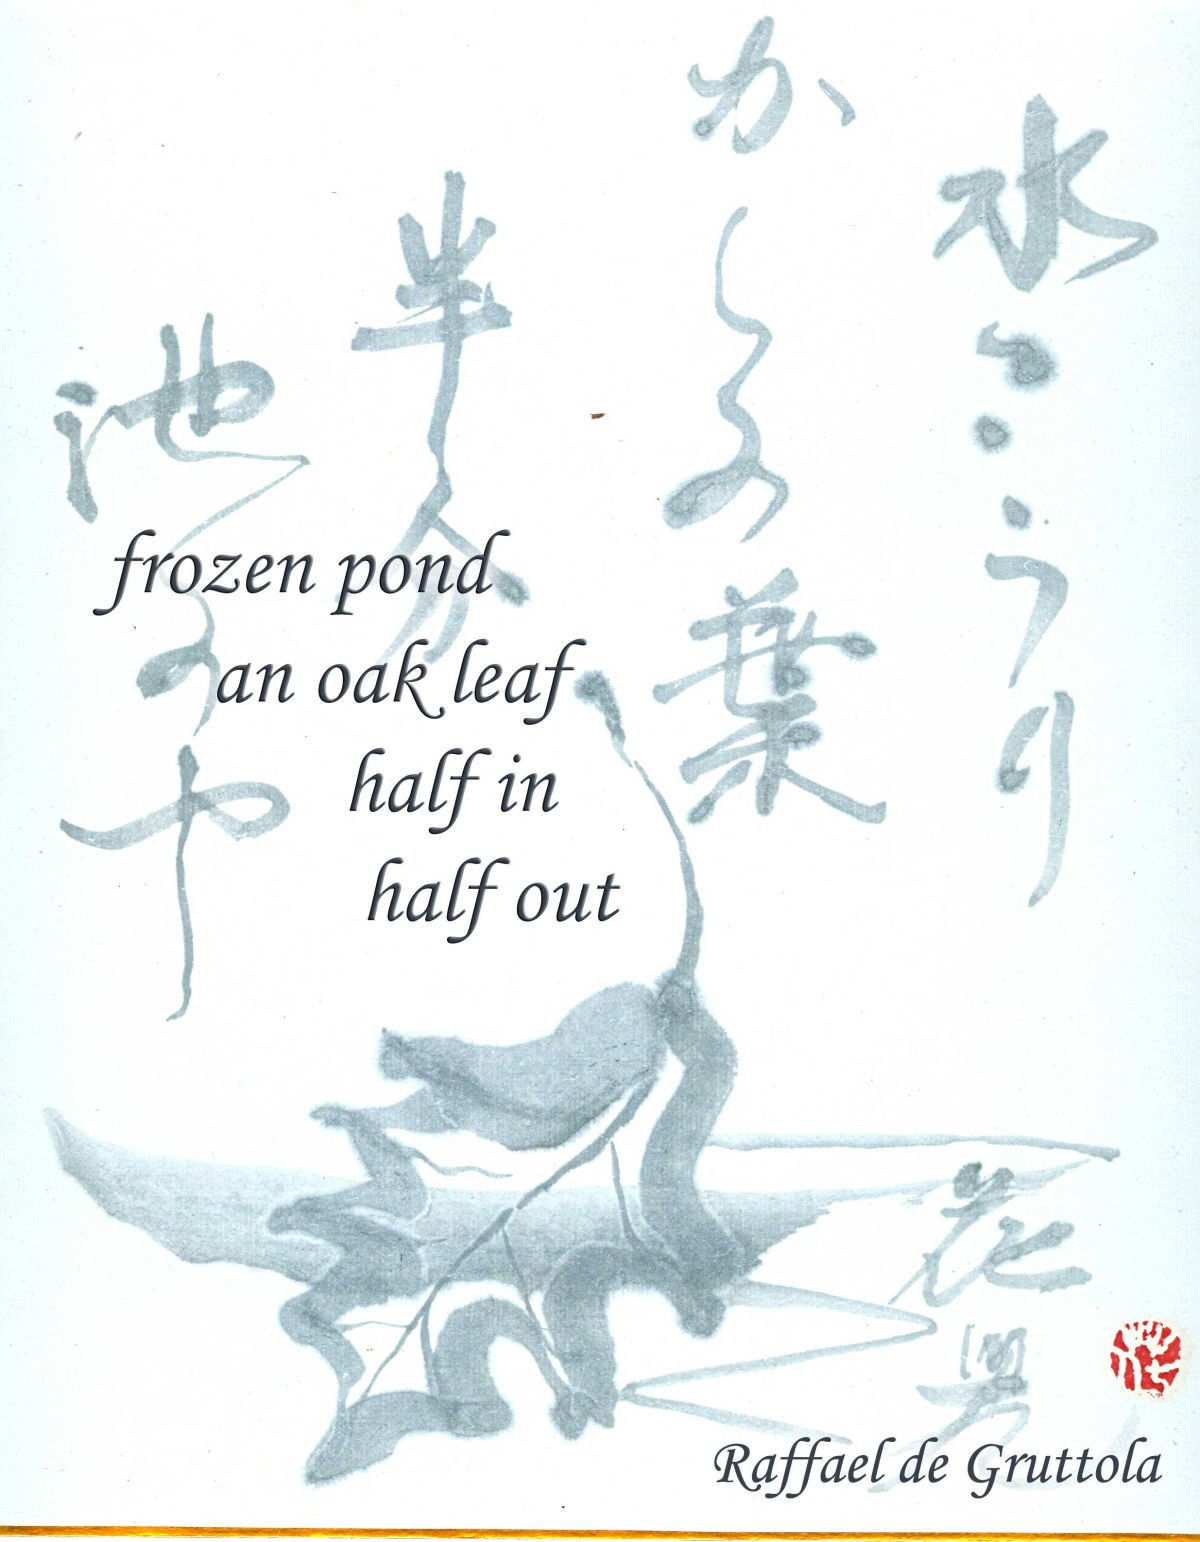 水こうり
かしの葉
半分
池のや
frozen pond
an oak leaf
half in
half out
Raffael de Gruttola